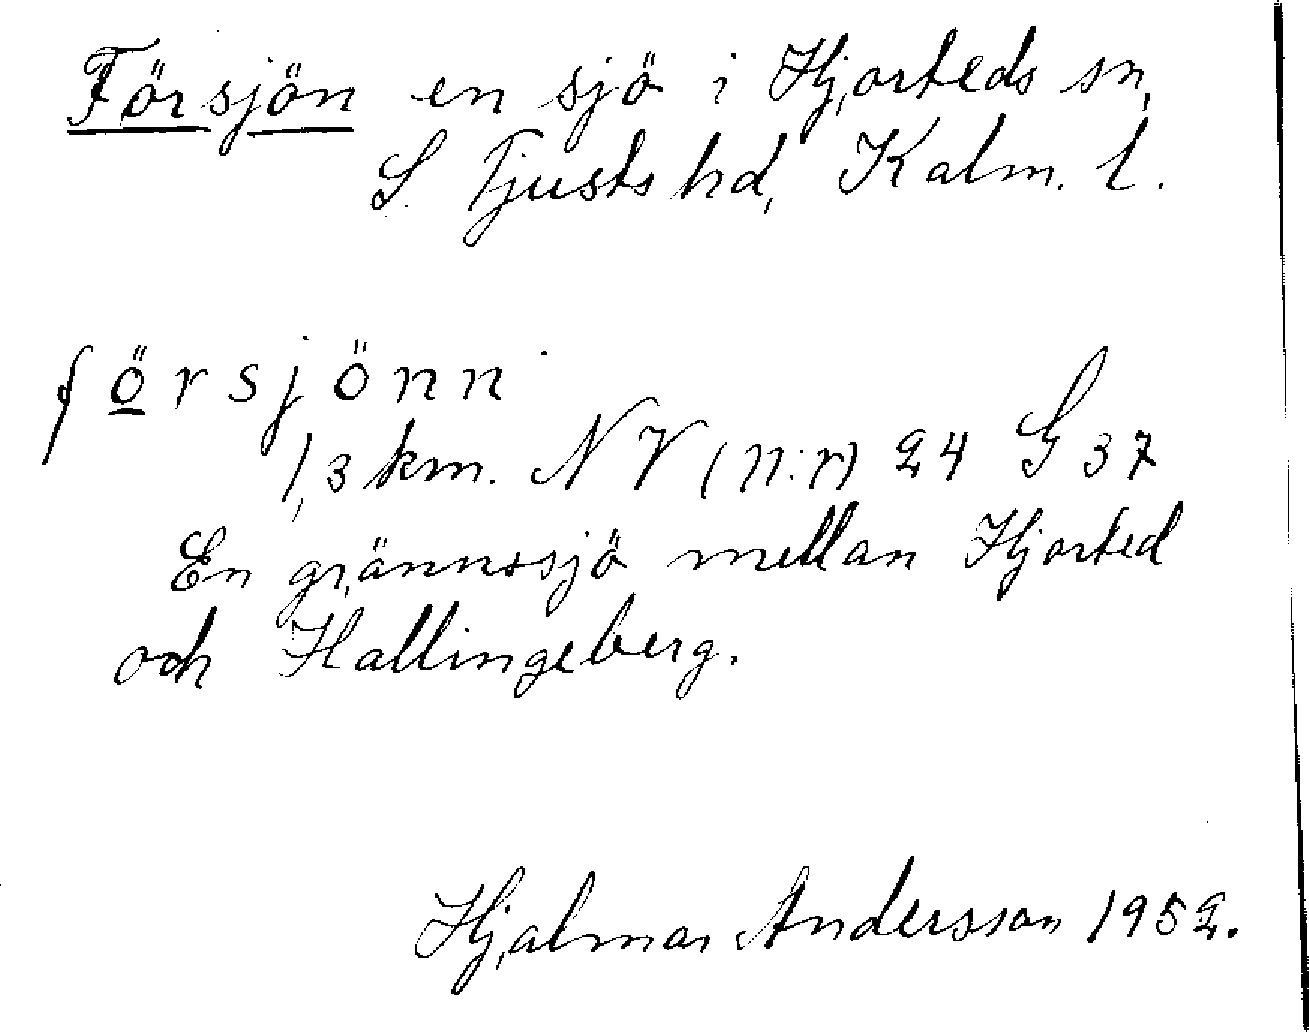 Försjön en sjö i Hjorteds sn,
S. Tjusts hd, Kalm. l.
försjönn
1,3 km. NV (n:r) 24 G 37
En grännssjö mellan Hjorted
och Hallingeberg.
Hjalmar Andersson 1952.